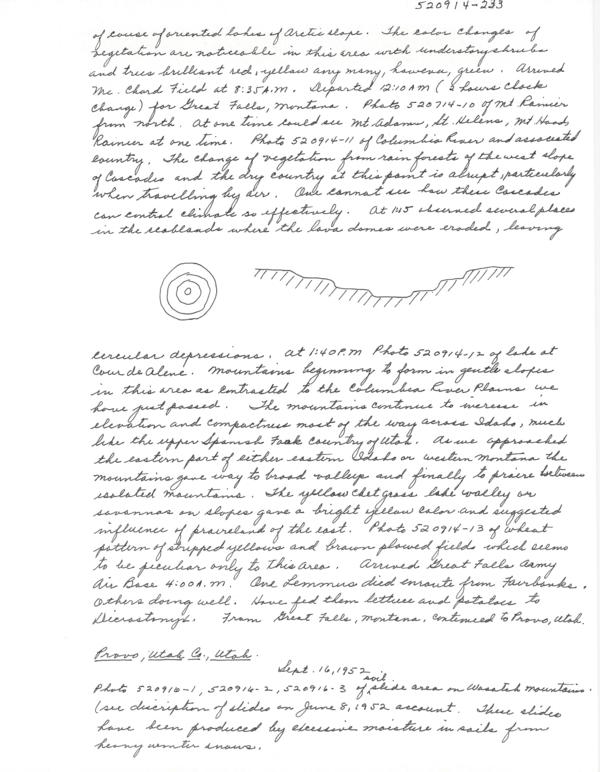 520914-233
of cause of oriented lakes of Arctic slope. The color changes of
vegetation are noticeable in this area with understory shrubs
and trees brilliant red, yellow any many, however, green. Arrived
Mc. Chord Field at 8:35 A.M. Departed 12:10 AM (2 hours clock
change) for Great Falls, Montana. Photo 520914-10 of Mt Rainier
from north. At one time could see Mt. Adams, St. Helens, Mt Hood,
Rainier at one time. Photo 520914-11 of Columbia River and associated
country. The change of vegetation from rain forests of the west slope
of Cascades and the dry country at this point is abrupt, particularly
when travelling by air. One cannot see how these Cascades
can control climate so effectively. At 1:45 observed several places
in the scablands where the lava domes were eroded, leaving
circular depressions. At 1:40 P.M Photo 520914-12 of lake at
Cour de Alene. Mountains beginning to form in gentle slopes
in this area as contrasted to the Columbia River Plains we
have just passed. The mountains continue to increase in
elevation and compactness most of the way across Idaho, much
like the upper Spanish Fork country of Utah. As we approached
the eastern part of either eastern Idaho or western Montana the
mountains gave way to broad valleys and finally to prairie between
isolated mountains. The yellow cheatgrass like valley or
savannas on slopes gave a bright yellow color and suggested
influence of prairieland of the east. Photo 520914-13 of wheat
pattern of stripped yellows and brown plowed fields which seems
to be peculiar only to this area. Arrived Great Falls Army
Air Base 4:00 A.M. One Lemmus died enroute from Fairbanks.
Others doing well. Have fed them lettuce and potatoes to
Dicrostonyx. From Great Falls, Montana, continued to Provo, Utah.
Provo, Utah Co., Utah.
Sept. 16, 1952
Photo 520916-1, 520916-2, 520916-3 of soil slide area on Wasatch Mountains.
(see discription of slides on June 8, 1952 account. These slides
have been produced by excessive moisture in soils from
heavy winter snows.